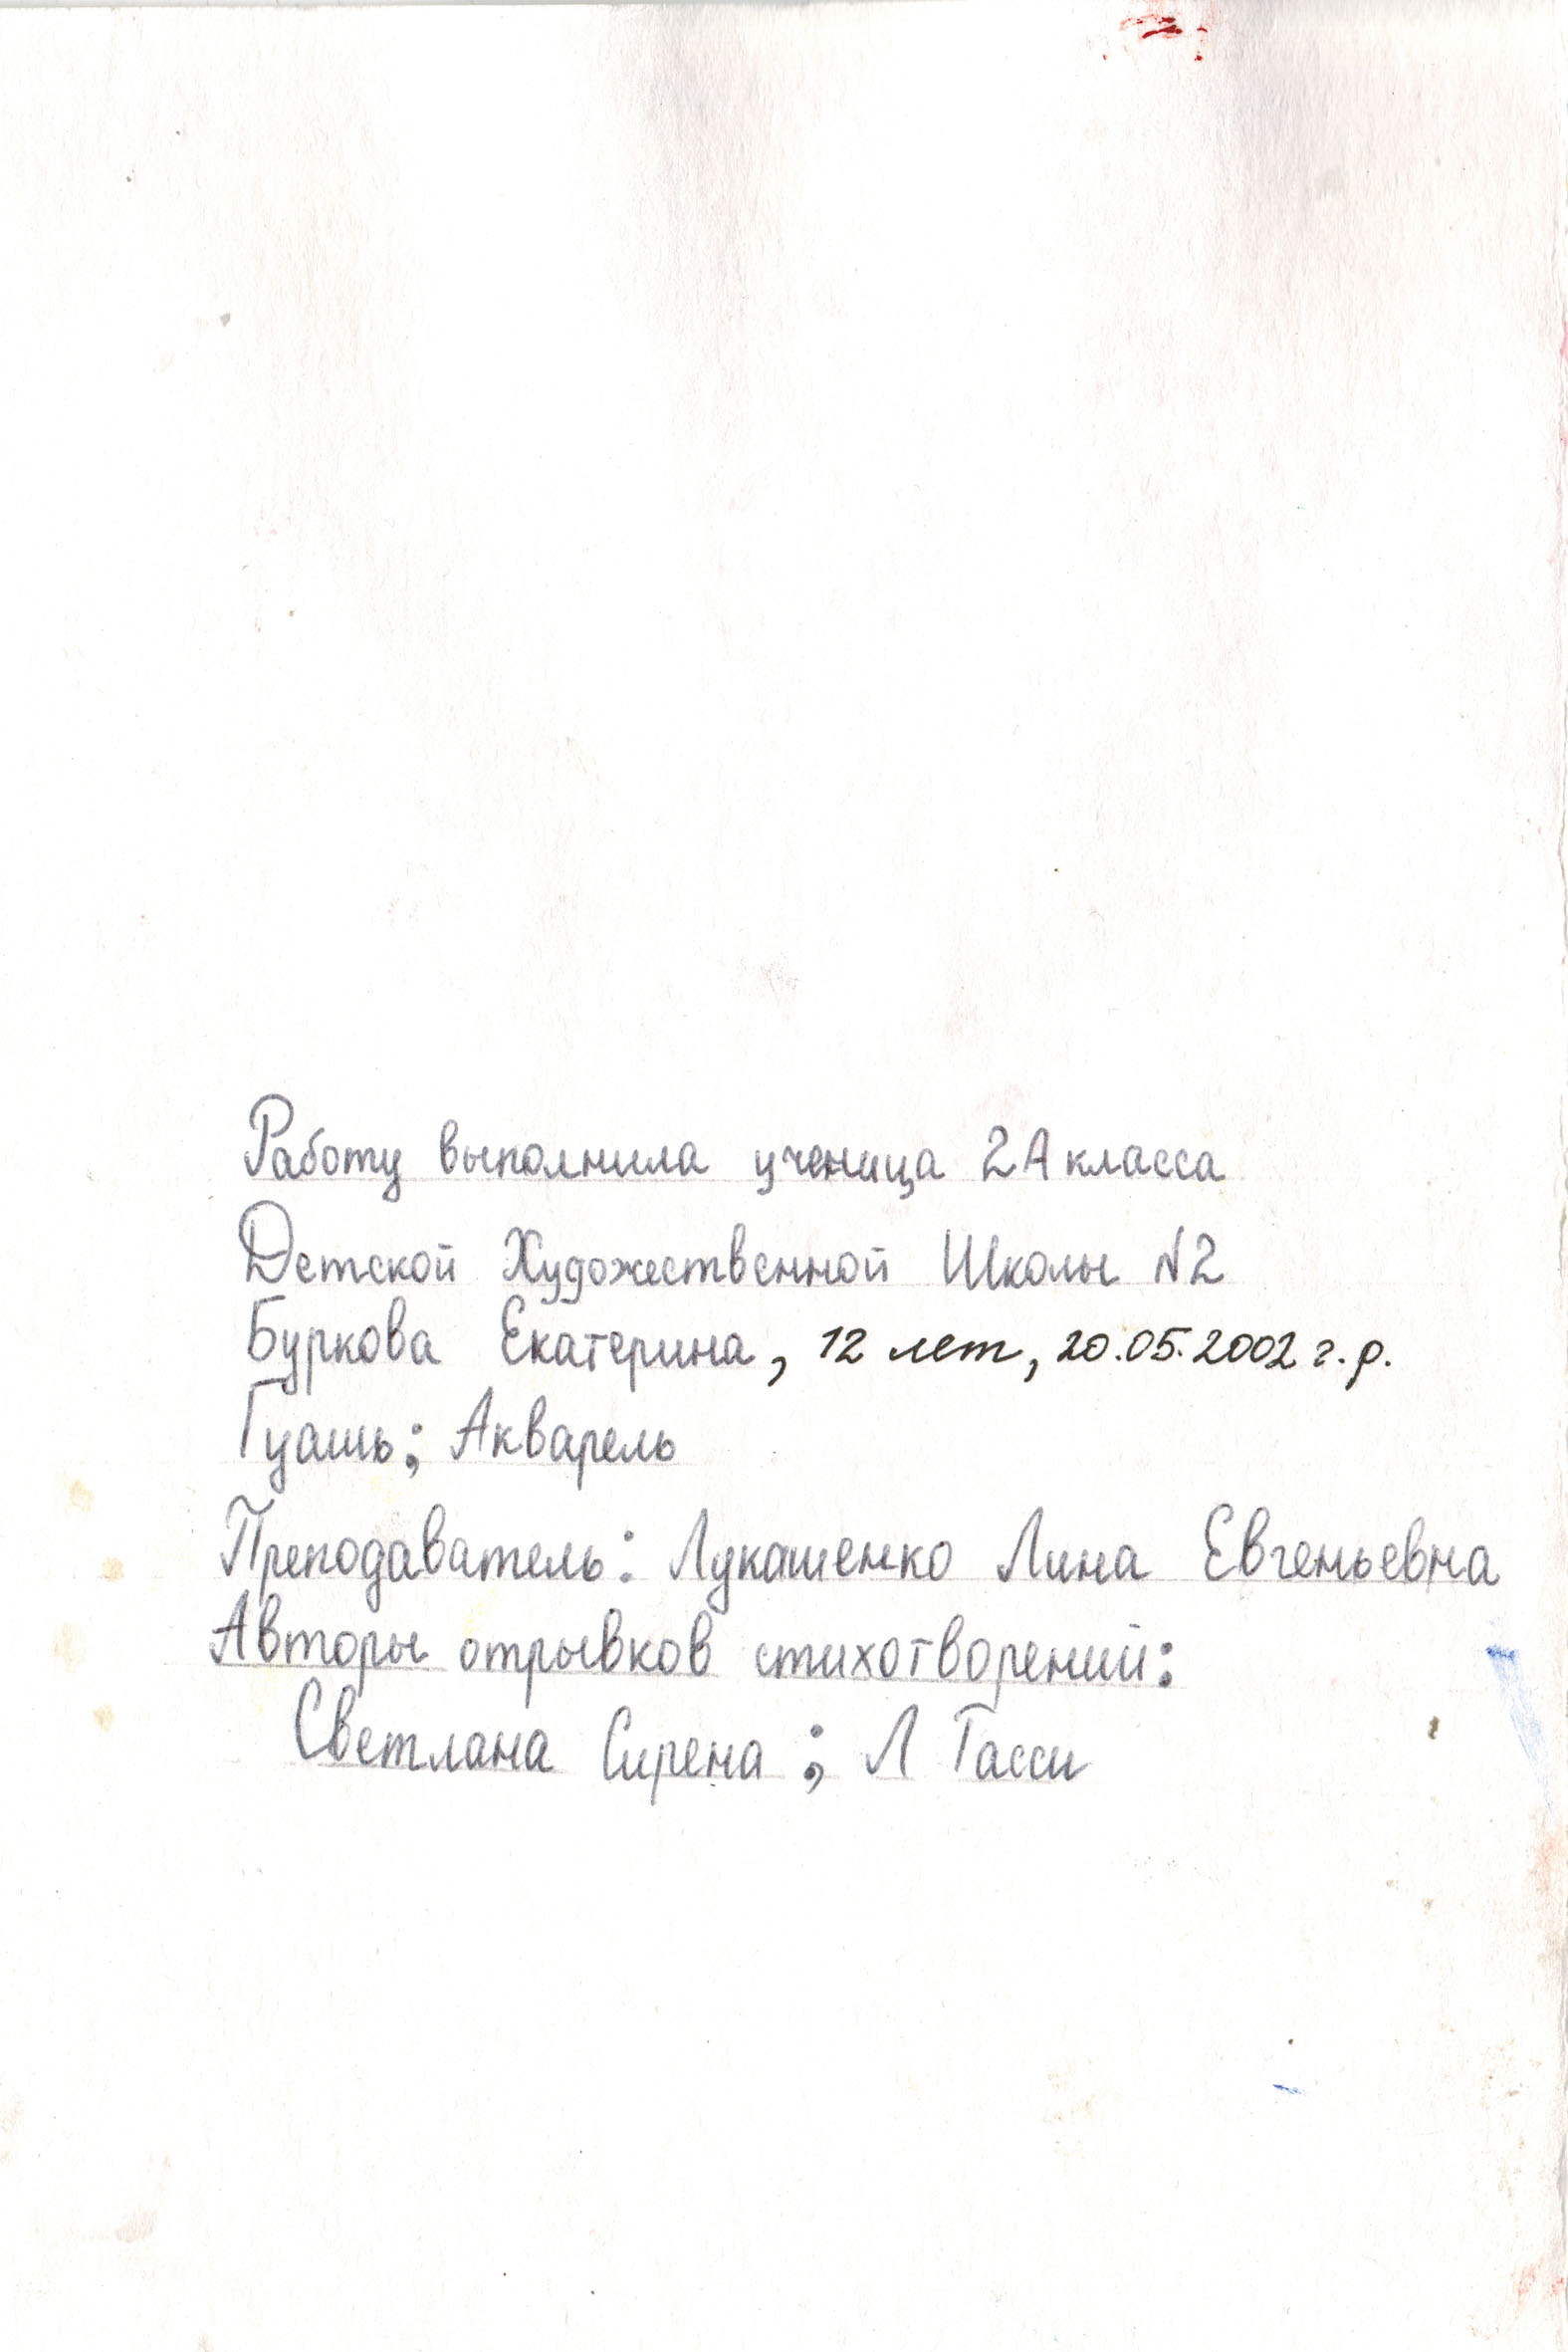 Работу выполнила ученица 2А класса
Детской Художественной Школы №2
Буркова Екатерина, 12 лет, 20.05.2002 г.р.
Гуашь; Акварель
Преподаватель: Лукашенко Лина Евгеньевна
Авторы отрывков стихотворений:
Светлана Сирена; Л Тасси